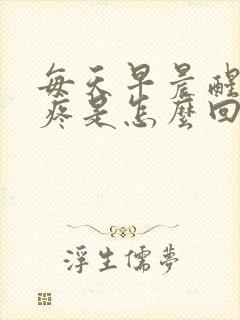 每天早晨醒
疼是怎麼回
浮生儒夢